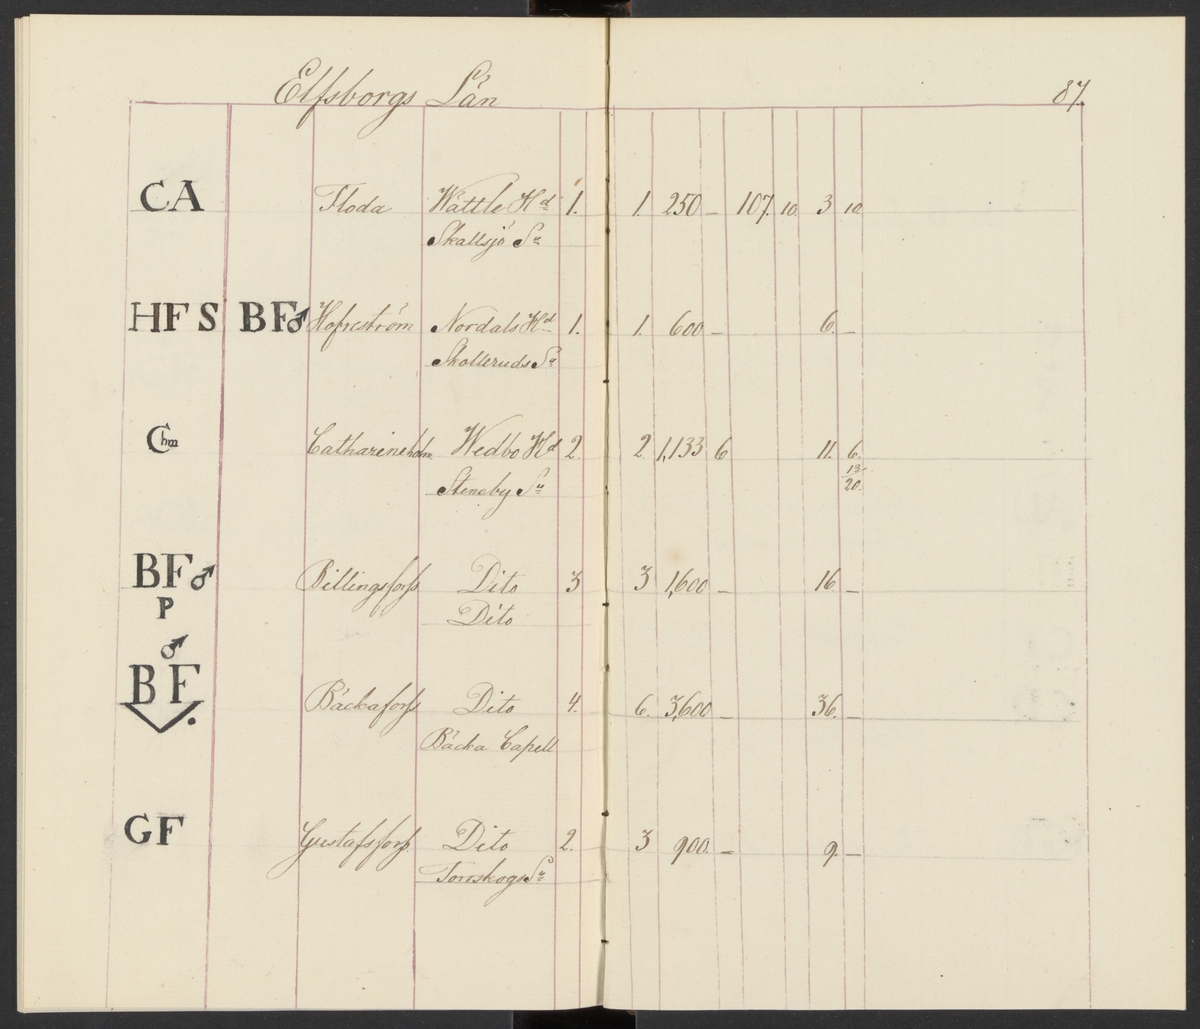 Elfsborgs Län 87.
CA Floda Wättle Hd 1. 1. 250 — 107. 10. 3 10.
Skallsjö Sn
HFS BF♂ Hofreström Nordals Hd 1. 1. 600 — 6. —
Skolleruds Sn
Chm Catharineholm Wedbo Hd 2. 2 1,133 6 11. 6.
Steneby Sn 13/20.
BF♂ Billingsforss Dito 3 3 1,600 — 16 —
P Dito
♂
BF Bäckaforss Dito 4. 6. 3,600 — 36. —
Bäcka Capell
GF Gustafsforss Dito 2. 3 900. — 9. —
Torrskogs Sn